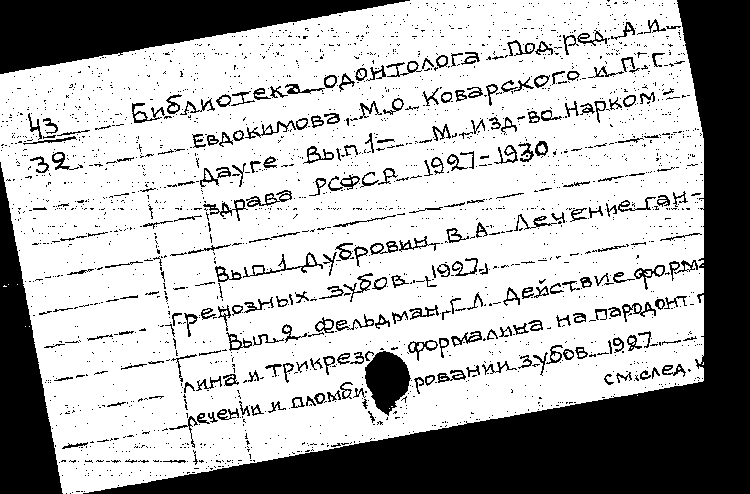 43
32
Библиотека одонтолога под ред А И
Евдокимова, М.О. Коварского и П Г
Дауге Вып 1 – М. Изд-во Нарком-
здрава РСФСР 1927-1930.
Вып.1 Дубровин, В.А Лечение ган-
гренозных зубов [1927]
Вып.2. Фельдман, Г.Л. Действие форма
лина и трикрезо - формалина на пародонт п
лечении и пломби ровании зубов 1927
см.след. к